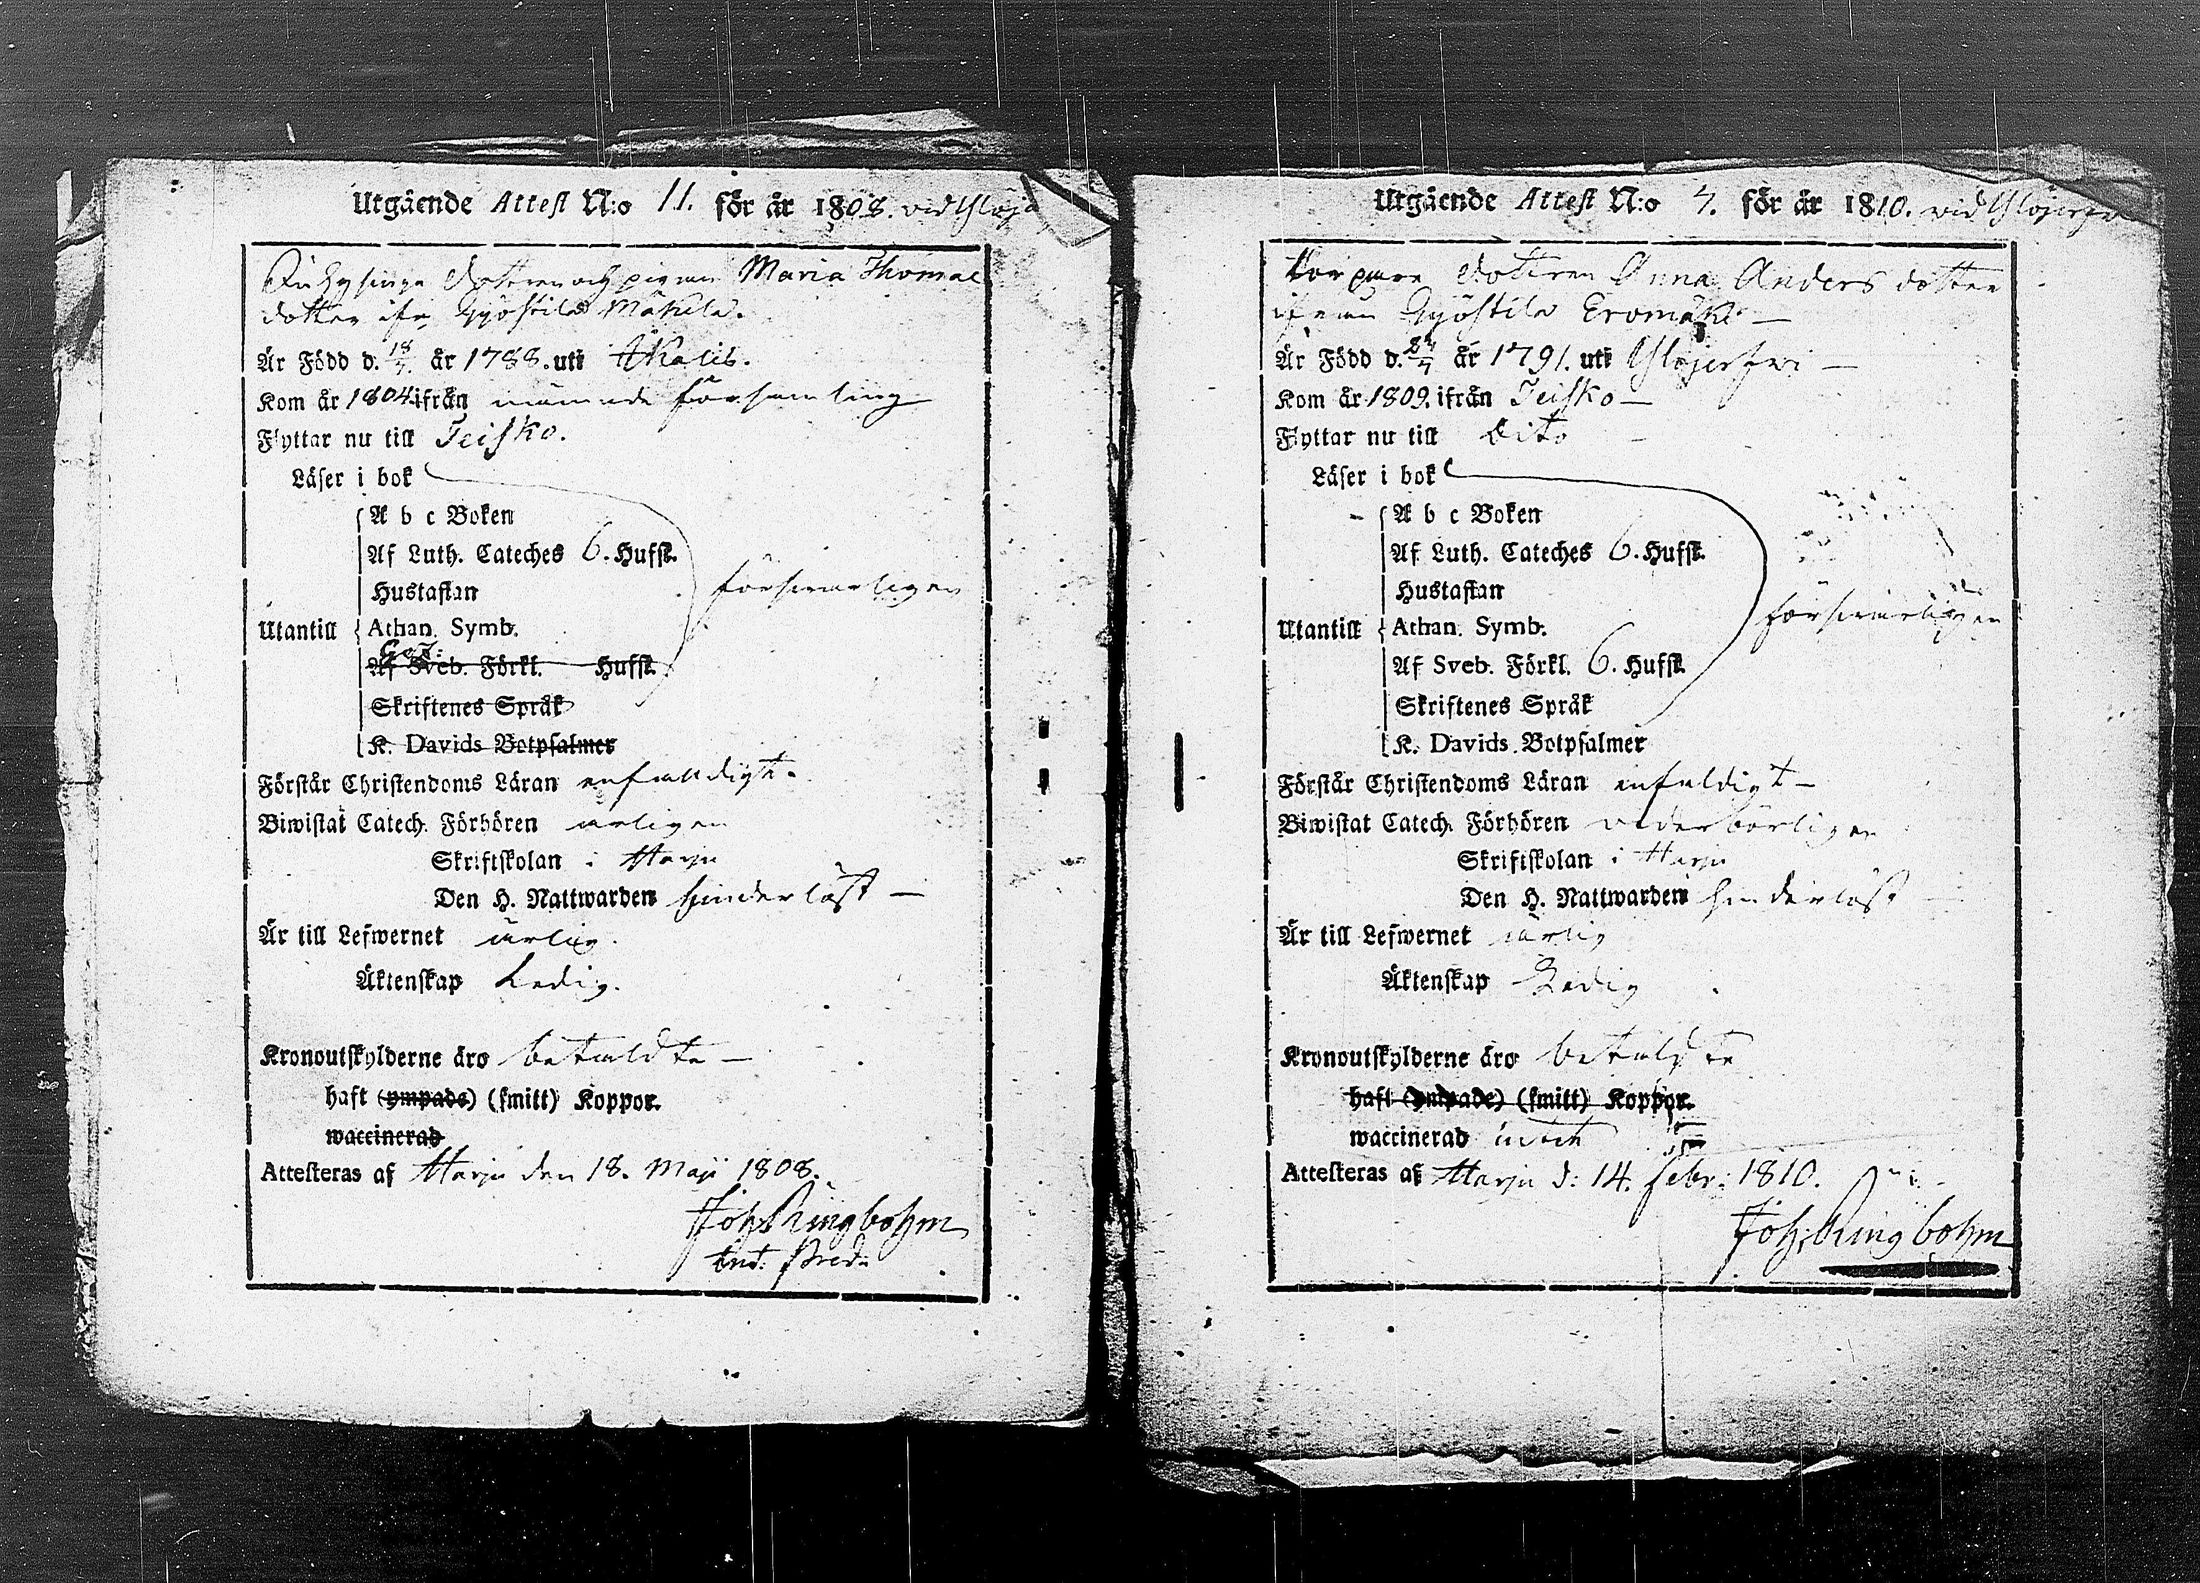 Utgående Attest N:o 11. för år 1808. vid Ylöjä
dotteren och pigan Maria Thomæ
dotter ifr. Gyöstilä Mäkelä.
Är Född d. 18/7. år 1788. uti Akalis.
Kom år 1804. ifrån nämnde församling
Flyttar nu till Teisko.
Läser i bok
A b c Boken
Af Luth. Cateches 6. Hufst.
Hustaflan
försvarligen
Utantill Athan. Symb.
Af Sveb. Förkl. Hufst.
Skriftenes Språk
K. Davids Botpsalmer
Förstår Christendoms Läran enfaldigt.
Biwistat Catech. Förhören ärligen
Skriftskolan i Harju
Den H. Nattwarden hinderlöst —
Är till Lefwernet ärlig.
Äktenskap Ledig.
Kronoutskylderne äro betaldte —
haft (ympade) (smitt) Koppor.
waccinerad
Attesteras af Harju den 18. Maji 1808.
Joh. Ringbohm
Utgående Attest N:o 7. för år 1810. vid Ylöjerfvi
Torpare dotteren Anna Anders dotter
ifrån Gyöstilä Eromäki —
Är Född d. 24/7 år 1791. uti Ylöjerfvi —
Kom år 1809. ifrån Teisko —
Flyttar nu till dito —
Läser i bok
A b c Boken
Af Luth. Cateches 6. Hufst.
Hustaflan
försvarligen
Utantill Athan. Symb.
Af Sveb. Förkl. 6. Hufst.
Skriftenes Språk
K. Davids Botpsalmer
Förstår Christendoms Läran enfaldigt —
Biwistat Catech. Förhören vederbörligen
Skriftskolan i Harju
Den H. Nattwarden hinderlöst —
Är till Lefwernet ärlig
Äktenskap Ledig
Kronoutskylderne äro betaldte
haft (ympade) (smitt) Koppor.
waccinerad
Attesteras af Harju d: 14. Febr: 1810.
Joh: Ringbohm